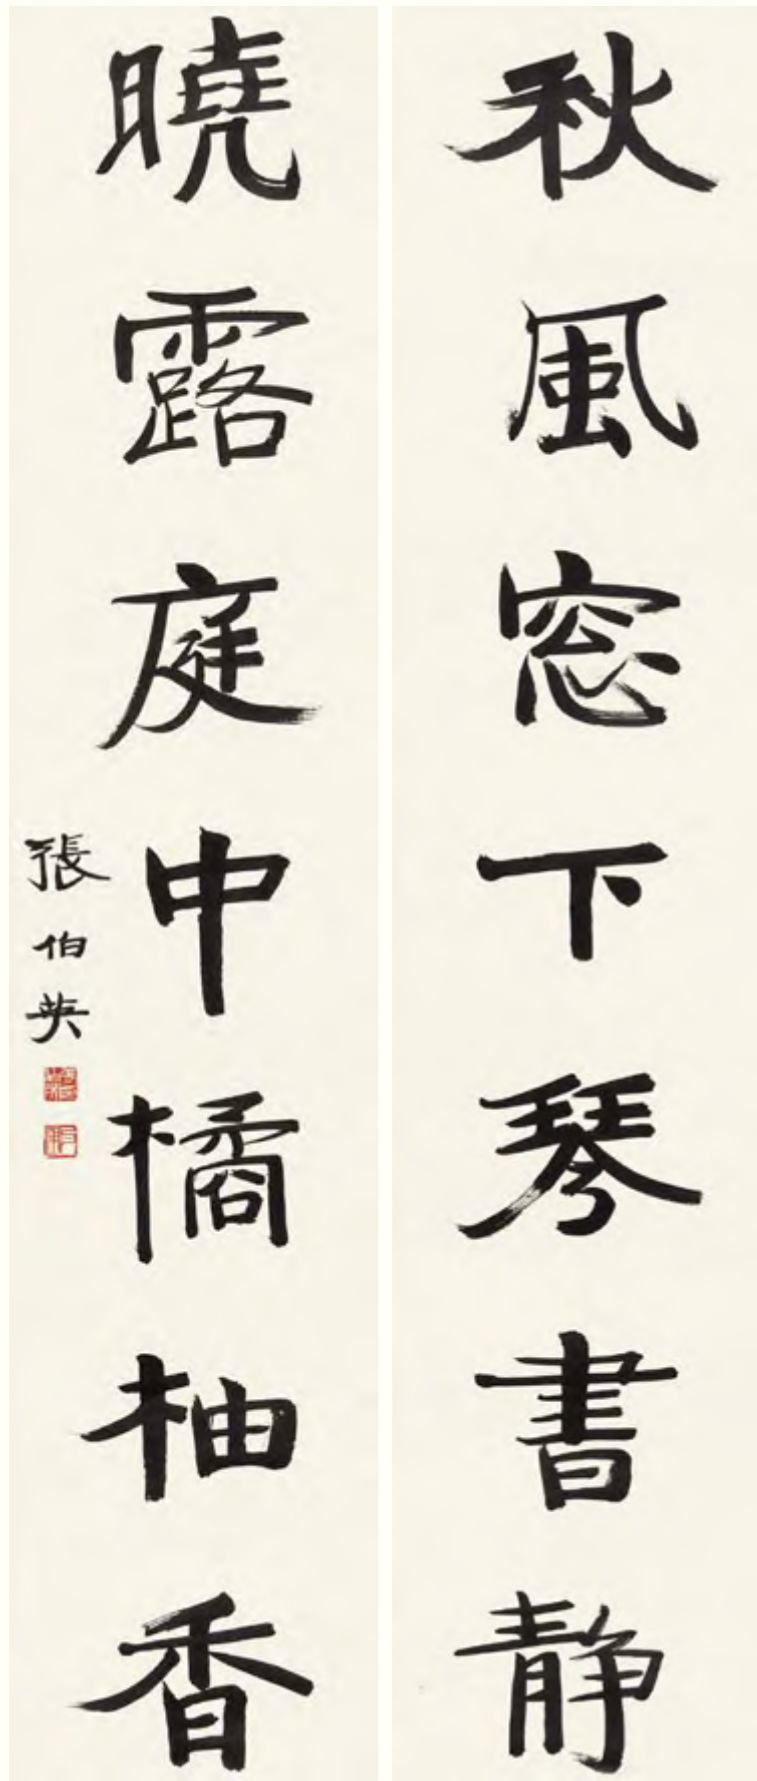 秋風窓下琴書静
曉露庭中橘柚香
張伯英